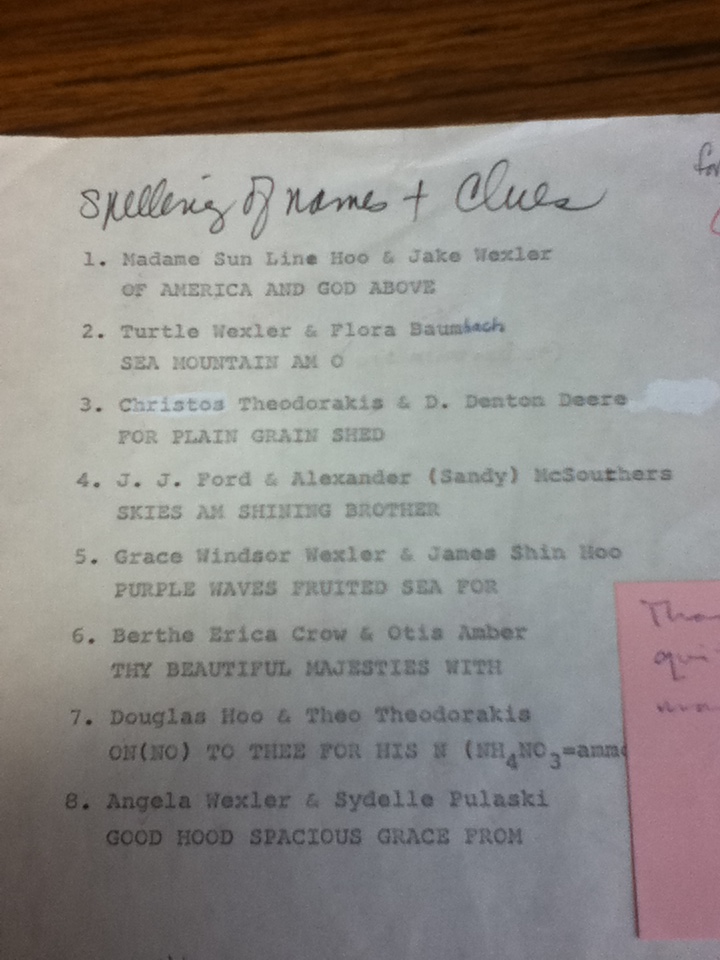 Spelling of names + Clues
1. Madame Sun Line Hoo & Jake Wexler
OF AMERICA AND GOD ABOVE
2. Turtle Wexler & Flora Baumbach
SEA MOUNTAIN AM O
3. Christos Theodorakis & D. Denton Deere
FOR PLAIN GRAIN SHED
4. J. J. Ford & Alexander (Sandy) McSouthers
SKIES AM SHINING BROTHER
5. Grace Windsor Wexler & James Shin Hoo
PURPLE WAVES FRUITED SEA FOR
6. Berthe Erica Crow & Otis Amber
THY BEAUTIFUL MAJESTIES WITH
7. Douglas Hoo & Theo Theodorakis
ON(NO) TO THEE FOR HIS N (NH₄NO₃=amm
8. Angela Wexler & Sydelle Pulaski
GOOD HOOD SPACIOUS GRACE FROM